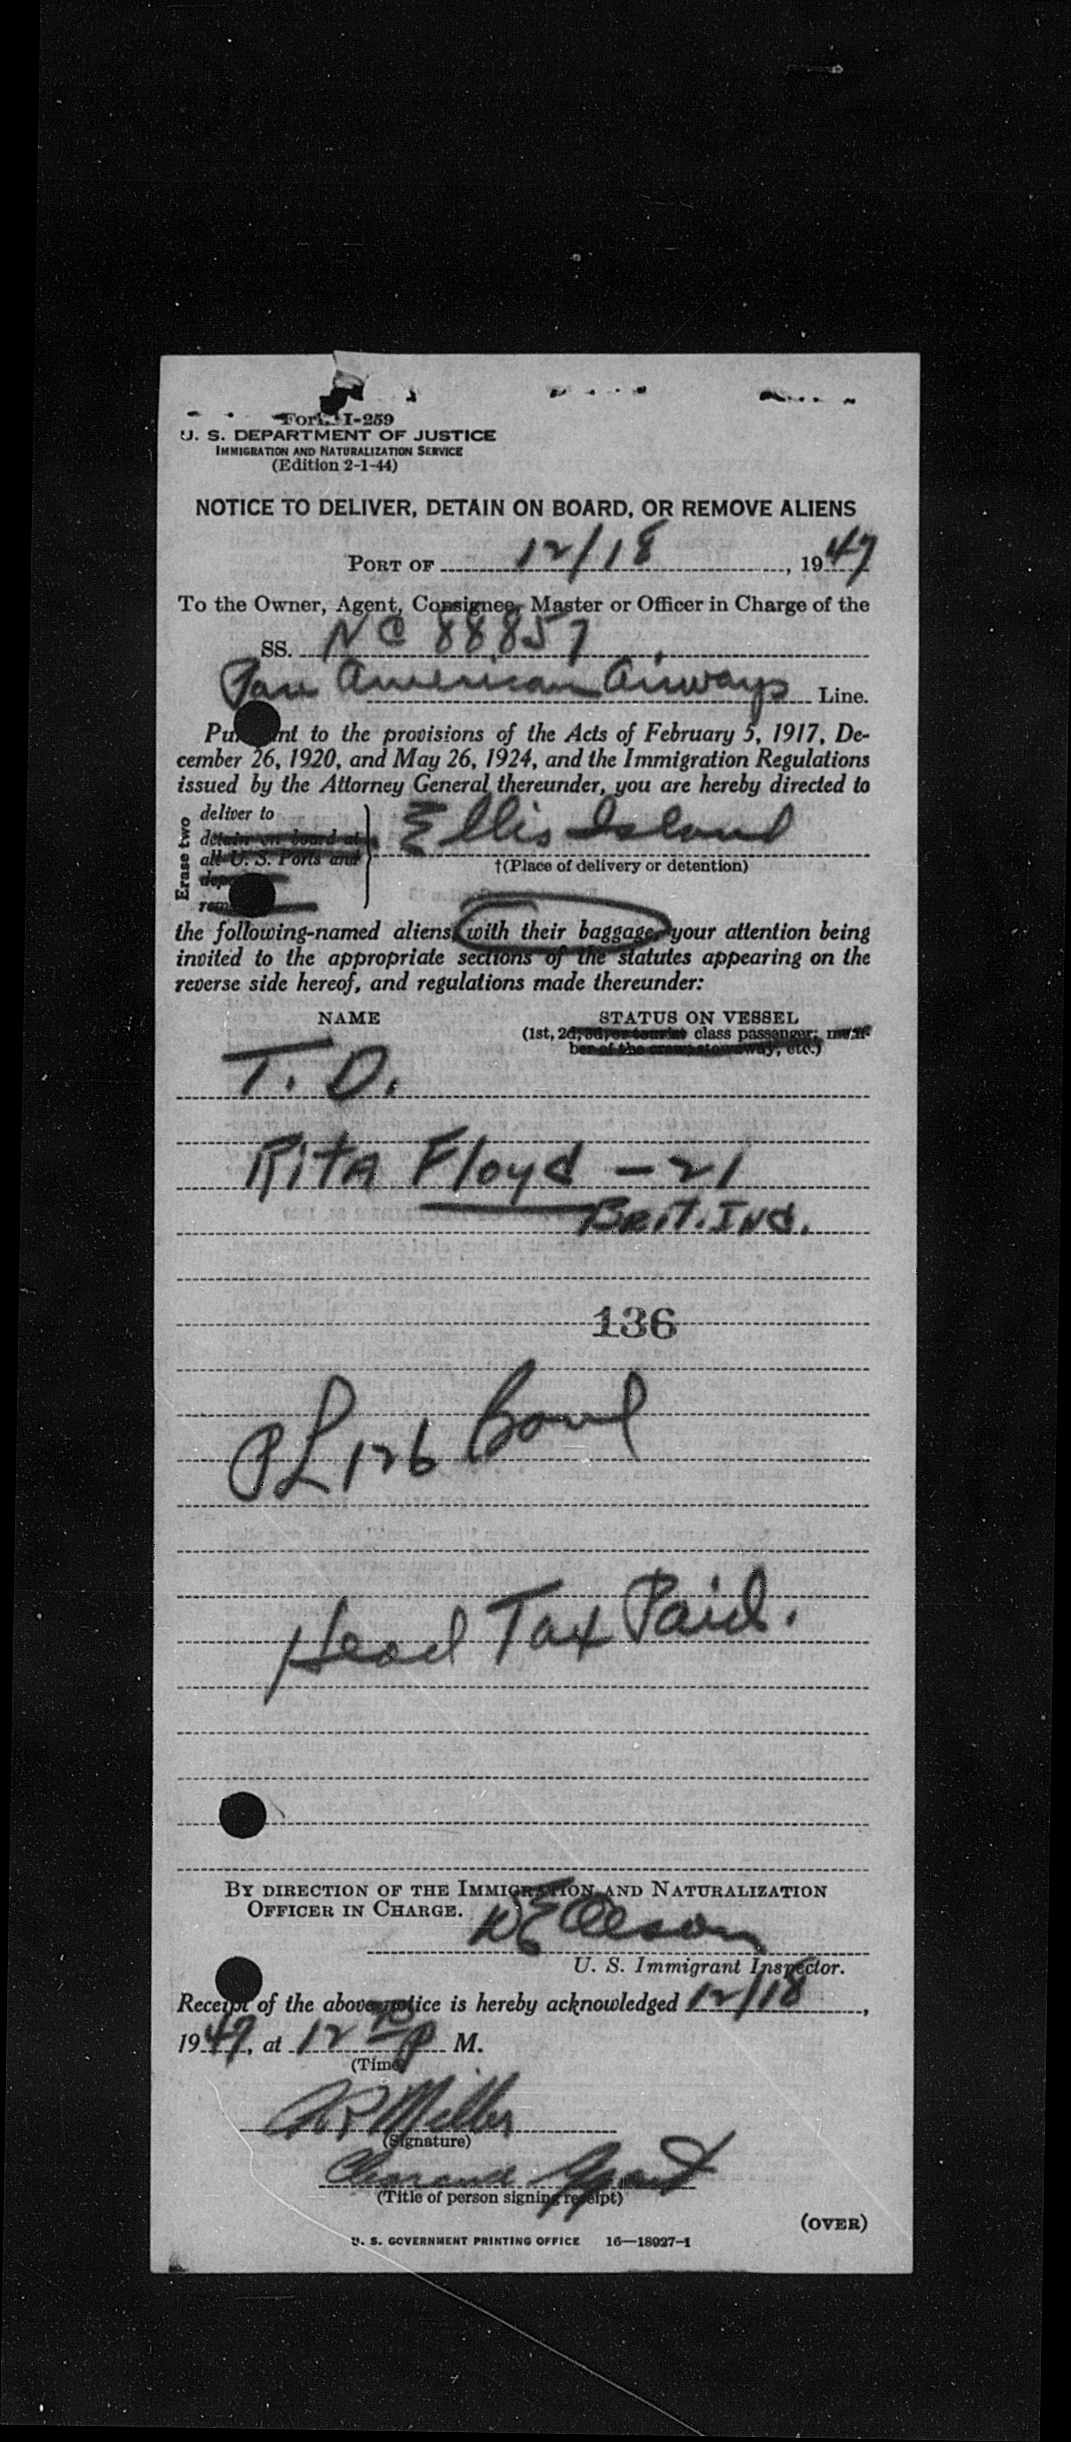 Form I-259
U. S. DEPARTMENT OF JUSTICE
IMMIGRATION AND NATURALIZATION SERVICE
(Edition 2-1-44)
NOTICE TO DELIVER, DETAIN ON BOARD, OR REMOVE ALIENS
PORT OF 12/18, 1947
To the Owner, Agent, Consignee, Master or Officer in Charge of the
SS. NC 88857
Pan American Airways Line.
Pursuant to the provisions of the Acts of February 5, 1917, De-
cember 26, 1920, and May 26, 1924, and the Immigration Regulations
issued by the Attorney General thereunder, you are hereby directed to
Erase two
deliver to
detain on board at
all U. S. Ports and
Ellis Island
†(Place of delivery or detention)
the following-named aliens, with their baggage, your attention being
invited to the appropriate sections of the statutes appearing on the
reverse side hereof, and regulations made thereunder:
NAME STATUS ON VESSEL
(1st, 2d, 3d, or tourist class passenger; mem-
ber of the crew, stowaway, etc.)
T. D.
Rita Floyd - 21
Brit. Ind.
136
PL 126 Bond
Head Tax Paid.
BY DIRECTION OF THE IMMIGRATION AND NATURALIZATION
OFFICER IN CHARGE.
Olson
U. S. Immigrant Inspector.
Receipt of the above notice is hereby acknowledged 12/18,
1947, at 12 P M.
(Time)
Miller
(Signature)
Clearance Agent
(Title of person signing receipt)
(OVER)
U. S. GOVERNMENT PRINTING OFFICE 16—18027-1